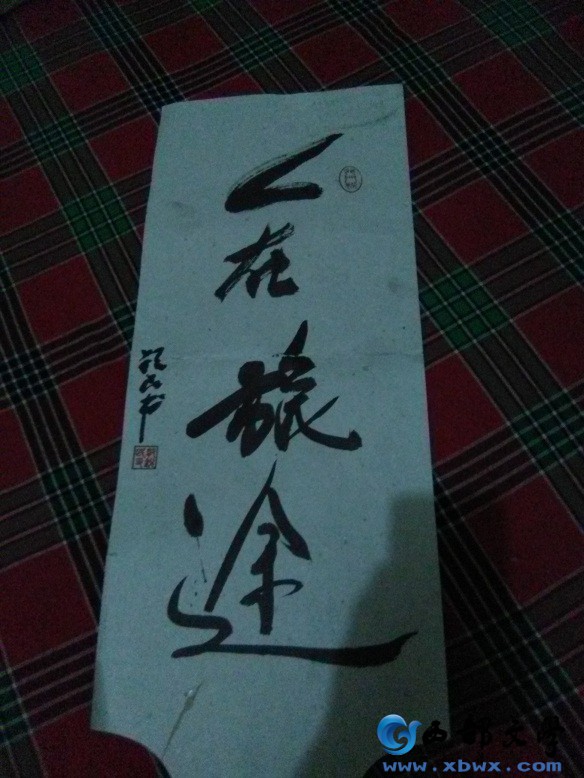 人在旅途
西部文学
www.xbwx.com